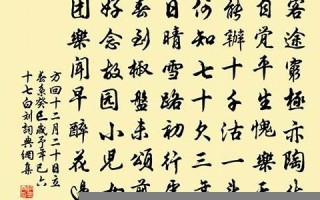 客途窮極亦陶
自覺平生愧樂
能辦十千沽一斗
何知七十欠三年
日晴雪路初行
春到椒盤未頌
好念故園小兒
团樂聞早醉花邊
方回十二月二十日立
春系癸巳歲予年已六
十七白刘詞典網集